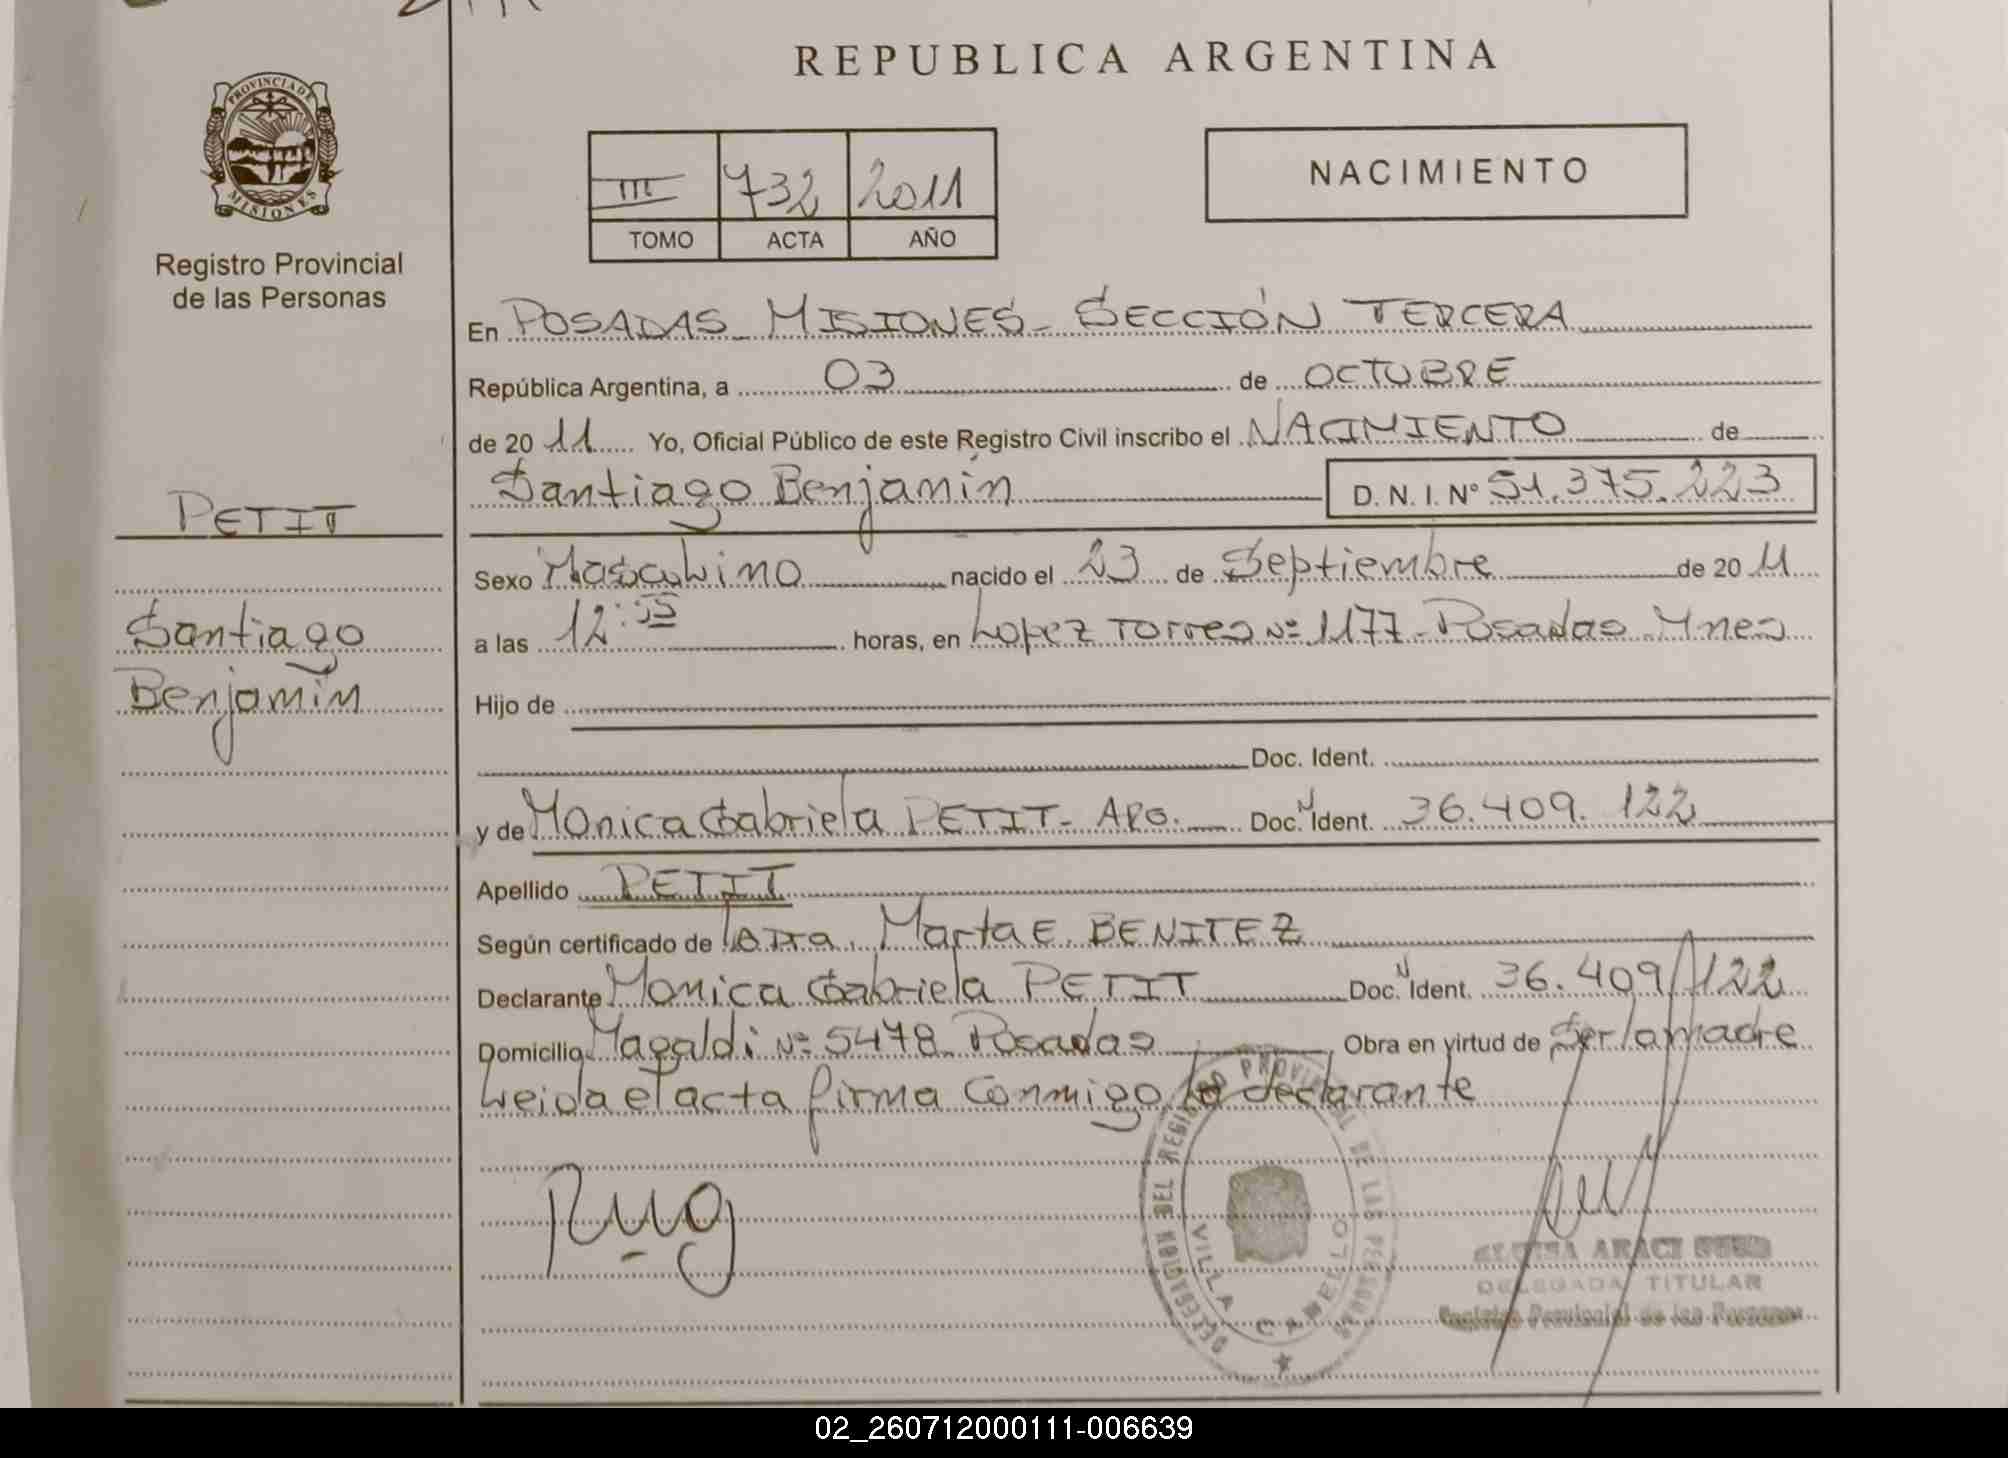 REPUBLICA ARGENTINA
PROVINCIA DE
MISIONES
Registro Provincial
de las Personas
III 732 2011
TOMO ACTA AÑO
NACIMIENTO
En POSADAS MISIONES - SECCIÓN TERCERA
República Argentina, a 03 de OCTUBRE
de 20 11 Yo, Oficial Público de este Registro Civil inscribo el NACIMIENTO de
Santiago Benjamín D. N. I. Nº 51.375.223
PETIT
Santiago
Benjamín
Sexo Masculino nacido el 23 de Septiembre de 20 11
a las 12: horas, en Lopez Torres Nº 1177 - Posadas Mnes
Hijo de
Doc. Ident.
y de Monica Gabriela PETIT - ARG. Doc. N Ident. 36.409.122
Apellido PETIT
Según certificado de la Dra. Marta E. BENITEZ
Declarante Monica Gabriela PETIT Doc. N Ident. 36.409.122
Domicilio Magaldi Nº 5478 Posadas Obra en virtud de Ser la madre
Leida el acta firma Conmigo la declarante
DELEGACION DEL REGISTRO PROVINCIAL DE LAS PERSONAS
VILLA CABELLO
ARACI
DELEGADA TITULAR
Registro Provincial de las Personas
02_260712000111-006639